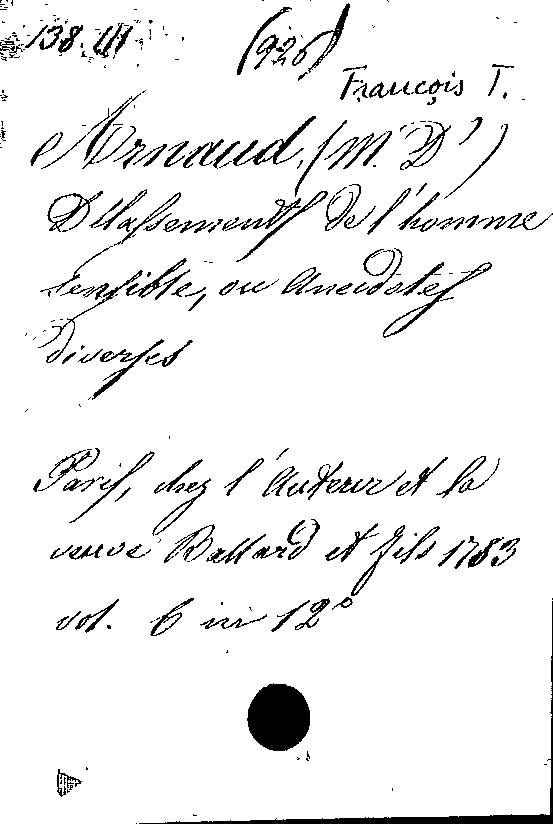 138. III (920)
François T.
Arnaud, (M. D')
Délassements de l'homme
sensible, ou Anecdotes
diverses
Paris, chez l'Auteur et la
veuve Ballard et fils 1783
vol. 6 in 12°